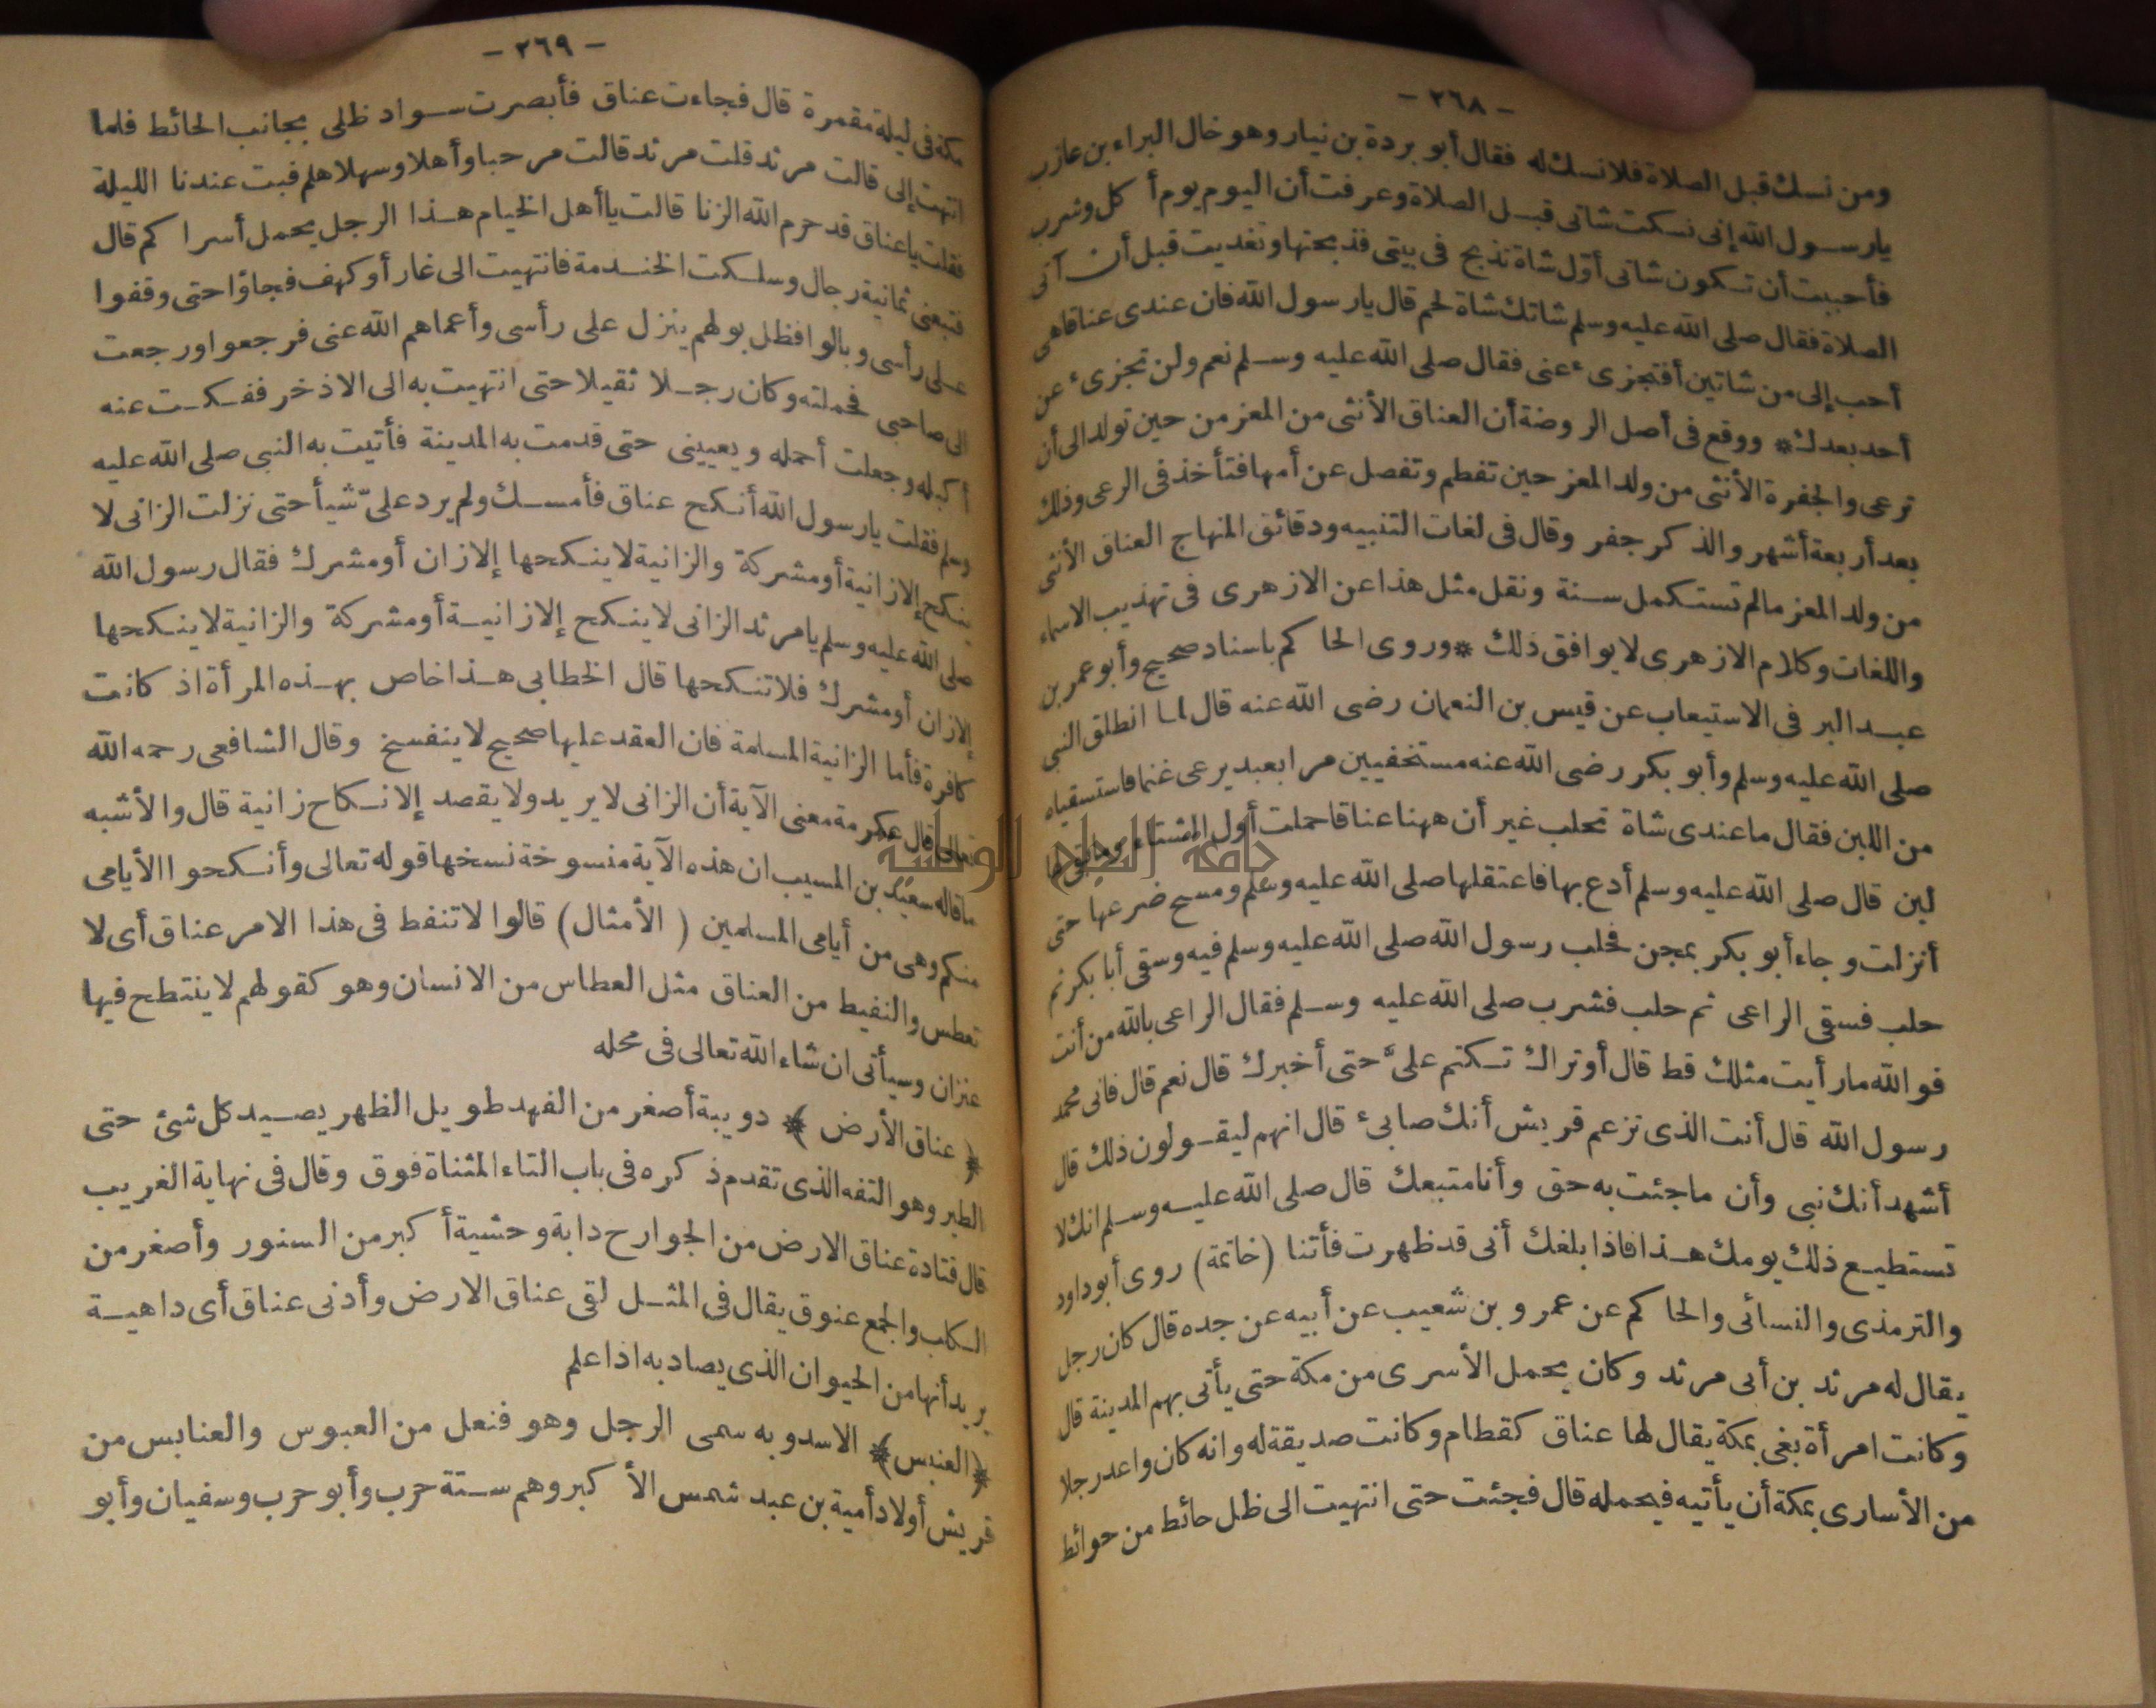 - ٢٦٨ -
ومن نسك قبل الصلاة فلا نسك له فقال أبو بردة بن نيار وهو خال البراء بن عازب
يارسول الله إنى نسكت شاتى قبل الصلاة وعرفت أن اليوم يوم أكل وشرب
فأحببت أن تكون شاتى أوّل شاة تذبح فى بيتى فذبحتها وتغديت قبل أن آتى
الصلاة فقال صلى الله عليه وسلم شاتك شاة لحم قال يارسول الله فان عندى عناقا هى
أحب إلى من شاتين أفتجزىء عنى فقال صلى الله عليه وسلم نعم ولن تجزىء عن
أحد بعدك * ووقع فى أصل الروضة أن العناق الأنثى من المعز من حين تولد الى أن
ترعى والجفرة الأنثى من ولد المعز حين تفطم وتفصل عن أمها فتأخذ فى الرعى وذلك
بعد أربعة أشهر والذكر جفر وقال فى لغات التنبيه ودقائق المنهاج العناق الأنثى
من ولد المعز مالم تستكمل سنة ونقل مثل هذا عن الازهرى فى تهذيب الاسماء
واللغات وكلام الازهرى لا يوافق ذلك * وروى الحاكم باسناد صحيح وأبو عمر بن
عبد البر فى الاستيعاب عن قيس بن النعمان رضى الله عنه قال لما انطلق النبى
صلى الله عليه وسلم وأبو بكر رضى الله عنه مستخفيين مرا بعبد يرعى غنما فاستسقياه
من اللبن فقال ما عندى شاة تحلب غير أن ههنا عناقا حملت أول الشتاء وما بقى لها
لبن قال صلى الله عليه وسلم أدع بها فاعتقلها صلى الله عليه وسلم ومسح ضرعها حتى
أنزلت وجاء أبو بكر بمجن فحلب رسول الله صلى الله عليه وسلم فيه وسقى أبا بكر ثم
حلب فسقى الراعى ثم حلب فشرب صلى الله عليه وسلم فقال الراعى بالله من أنت
فوالله مارأيت مثلك قط قال أوتراك تكتم علىّ حتى أخبرك قال نعم قال فانى محمد
رسول الله قال أنت الذى تزعم قريش أنك صابىء قال انهم ليقولون ذلك قال
أشهد أنك نبى وأن ماجئت به حق وأنا متبعك قال صلى الله عليه وسلم انك لا
تستطيع ذلك يومك هذا فاذا بلغك أنى قد ظهرت فأتنا (خاتمة) روى أبو داود
والترمذى والنسائى والحاكم عن عمرو بن شعيب عن أبيه عن جده قال كان رجل
يقال له مرثد بن أبى مرثد وكان يحمل الأسرى من مكة حتى يأتى بهم المدينة قال
وكانت امرأة بغى بمكة يقال لها عناق كقطام وكانت صديقة له وانه كان واعد رجلا
من الأسارى بمكة أن يأتيه فيحمله قال فجئت حتى انتهيت الى ظل حائط من حوائط
- ٢٦٩ -
مكة فى ليلة مقمرة قال فجاءت عناق فأبصرت سواد ظلى بجانب الحائط فلما
انتهت إلى قالت مرثد قلت مرثد قالت مرحبا وأهلا وسهلا هلم فبت عندنا الليلة
فقلت ياعناق قد حرم الله الزنا قالت ياأهل الخيام هذا الرجل يحمل أسراكم قال
فتبعنى ثمانية رجال وسلكت الخندمة فانتهيت الى غار أو كهف فجاؤا حتى وقفوا
على رأسى وبالوا فظل بولهم ينزل على رأسى وأعماهم الله عنى فرجعوا ورجعت
الى صاحبى فحملته وكان رجلا ثقيلا حتى انتهيت به الى الاذخر ففككت عنه
أكبله وجعلت أحمله ويعيينى حتى قدمت به المدينة فأتيت به النبى صلى الله عليه
وسلم فقلت يارسول الله أنكح عناق فأمسك ولم يرد علىّ شيأ حتى نزلت الزانى لا
ينكح إلا زانية أو مشركة والزانية لا ينكحها إلا زان أو مشرك فقال رسول الله
صلى الله عليه وسلم يامرثد الزانى لا ينكح إلا زانية أو مشركة والزانية لا ينكحها
إلا زان أو مشرك فلا تنكحها قال الخطابى هذا خاص بهذه المرأة اذ كانت
كافرة فأما الزانية المسلمة فان العقد عليها صحيح لا ينفسخ وقال الشافعى رحمه الله
تعالى قال عكرمة معنى الآية أن الزانى لا يريد ولا يقصد إلا نكاح زانية قال والأشبه
ماقاله سعيد بن المسيب ان هذه الآية منسوخة نسخها قوله تعالى وأنكحوا الأيامى
منكم وهى من أيامى المسلمين (الأمثال) قالوا لا تنفط فى هذا الامر عناق أى لا
تعطس والنفيط من العناق مثل العطاس من الانسان وهو كقولهم لا ينتطح فيها
عنزان وسيأتى ان شاء الله تعالى فى محله
﴿عناق الأرض﴾ دويبة أصغر من الفهد طويل الظهر يصيد كل شئ حتى
الطير وهو التفه الذى تقدم ذكره فى باب التاء المثناة فوق وقال فى نهاية الغريب
قال قتادة عناق الارض من الجوارح دابة وحشية أكبر من السنور وأصغر من
الكلب والجمع عنوق يقال فى المثل لقى عناق الارض وأذنى عناق أى داهية
يريد أنها من الحيوان الذى يصاد به اذا علم
﴿العنبس﴾ الاسد وبه سمى الرجل وهو فنعل من العبوس والعنابس من
قريش أولاد أمية بن عبد شمس الأكبر وهم ستة حرب وأبو حرب وسفيان وأبو
جامعة النجاح الوطنية